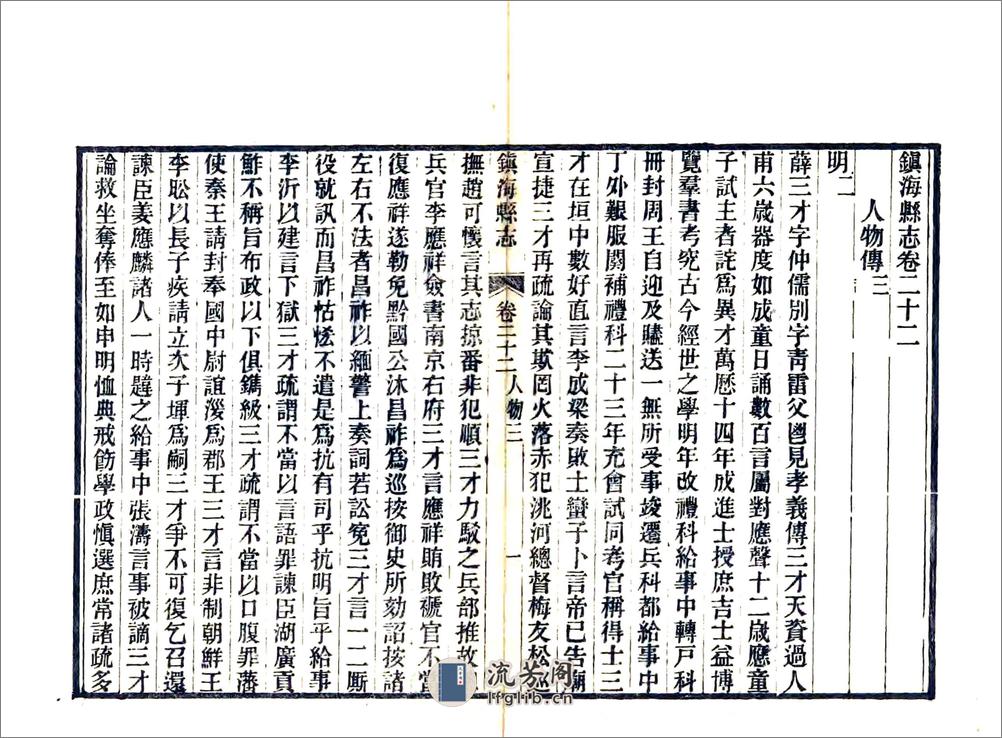 鎮海縣志卷二十二
人物傳三
明二
薛三才字仲儒別字青雷父邕見孝義傳三才天資過人
甫六歲器度如成童日誦數百言屬對應聲十二歲應童
子試主者詫為異才萬歷十四年成進士授庶吉士益博
覽羣書考究古今經世之學明年改禮科給事中轉戸科
冊封周王自迎及贐送一無所受事竣遷兵科都給事中
丁外艱服闋補禮科二十三年充會試同考官稱得士三
才在垣中數好直言李成梁奏敗土蠻子卜言帝已告廟
宣捷三才再疏論其欺罔火落赤犯洮河總督梅友松
鎮海縣志
卷二十二 人物三
一
撫趙可懷言其志掠番非犯順三才力駁之兵部推故
兵官李應祥僉書南京右府三才言應祥賄敗禠官不當
復應祥遂勒免黔國公沐昌祚為巡按御史所劾詔按諸
左右不法者昌祚以緬警上奏詞若訟冤三才言一二厮
役就訊而昌祚怙怯不遣是為抗有司乎抗明旨乎給事
李沂以建言下獄三才疏謂不當以言語罪諫臣湖廣貢
鮓不稱旨布政以下俱鐫級三才疏謂不當以口腹罪藩
使秦王請封奉國中尉誼漇為郡王三才言非制朝鮮王
李昖以長子疾請立次子琿為嗣三才爭不可復乞召還
諫臣姜應麟諸人一時韙之給事中張濤言事被謫三才
論救坐奪俸至如申明恤典戒飭學政慎選庶常諸疏多
流芳阁
lfglib.cn